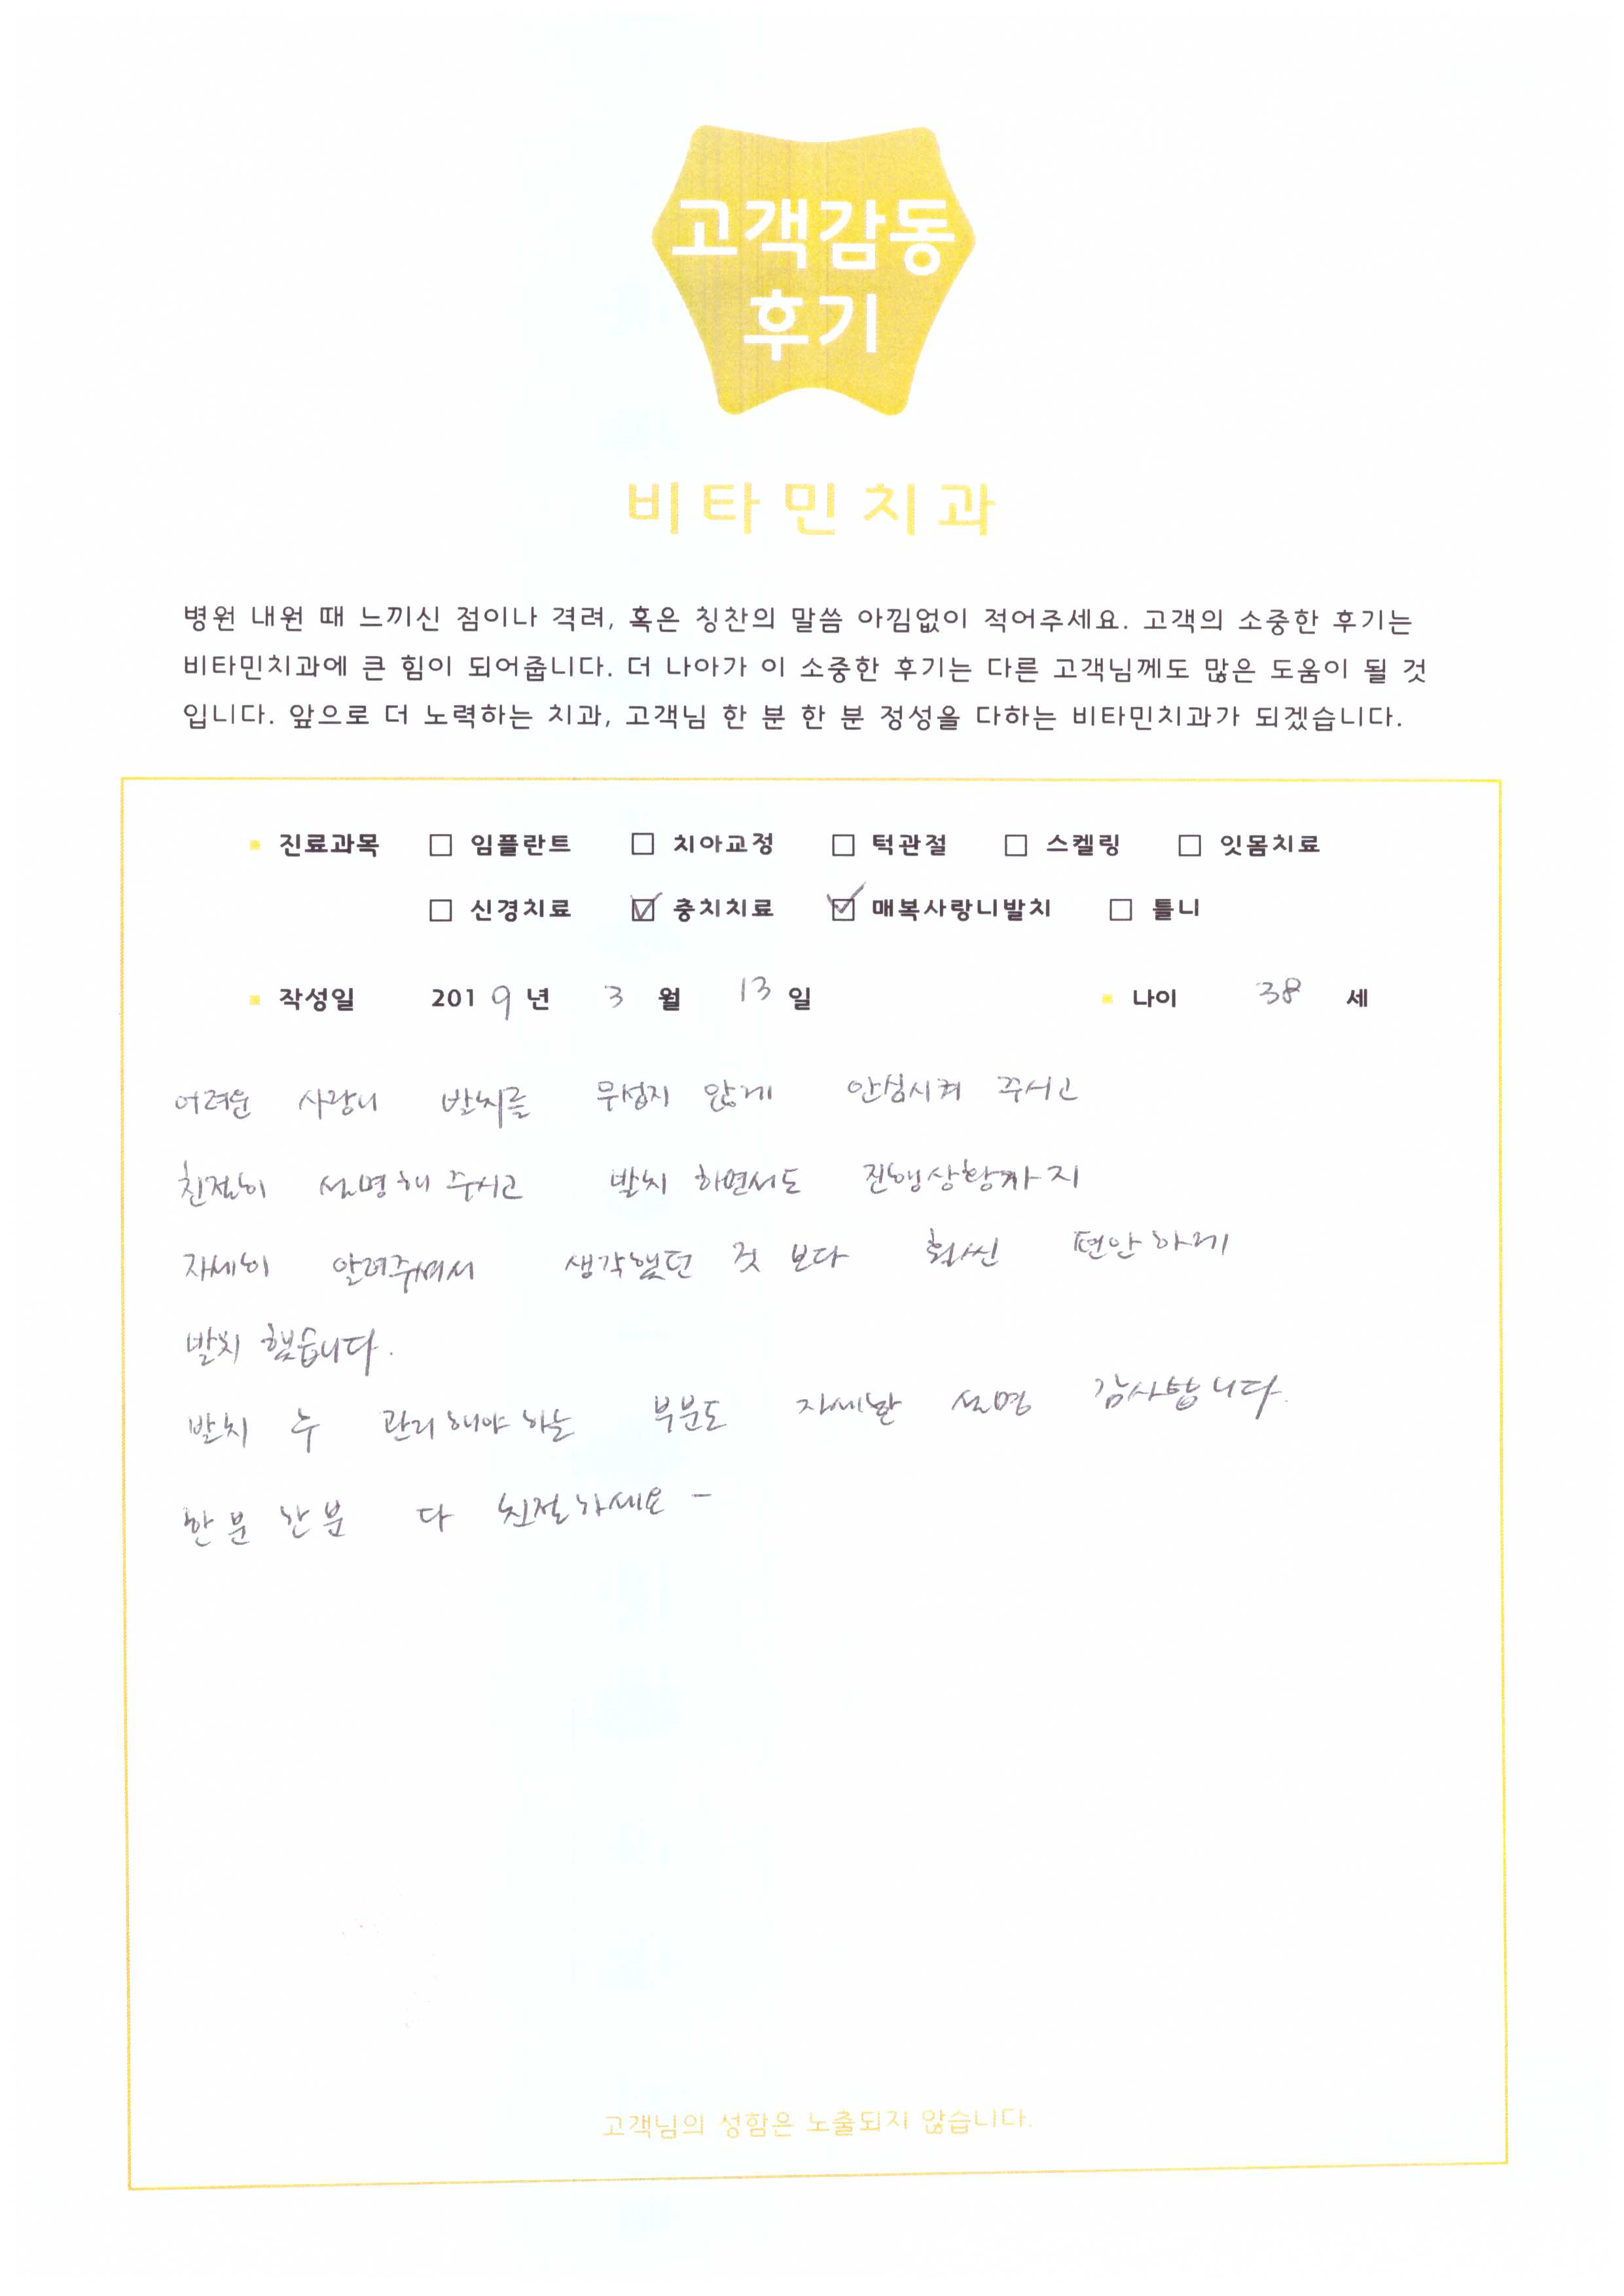 고객감동
후기
비타민치과
병원 내원 때 느끼신 점이나 격려, 혹은 칭찬의 말씀 아낌없이 적어주세요. 고객의 소중한 후기는
비타민치과에 큰 힘이 되어줍니다. 더 나아가 이 소중한 후기는 다른 고객님께도 많은 도움이 될 것
입니다. 앞으로 더 노력하는 치과, 고객님 한 분 한 분 정성을 다하는 비타민치과가 되겠습니다.
진료과목 □ 임플란트 □ 치아교정 □ 턱관절 □ 스켈링 □ 잇몸치료
□ 신경치료 ☑ 충치치료 ☑ 매복사랑니발치 □ 틀니
작성일 2019년 3월 13일 나이 38 세
어려운 사랑니 발치를 무섭지 않게 안심시켜 주시고
친절히 설명해 주시고 발치 하면서도 진행상황까지
자세히 알려주셔서 생각했던 것 보다 훨씬 편안하게
발치 했습니다.
발치 후 관리해야 하는 부분도 자세한 설명 감사합니다.
한분 한분 다 친절하세요 -
고객님의 성함은 노출되지 않습니다.